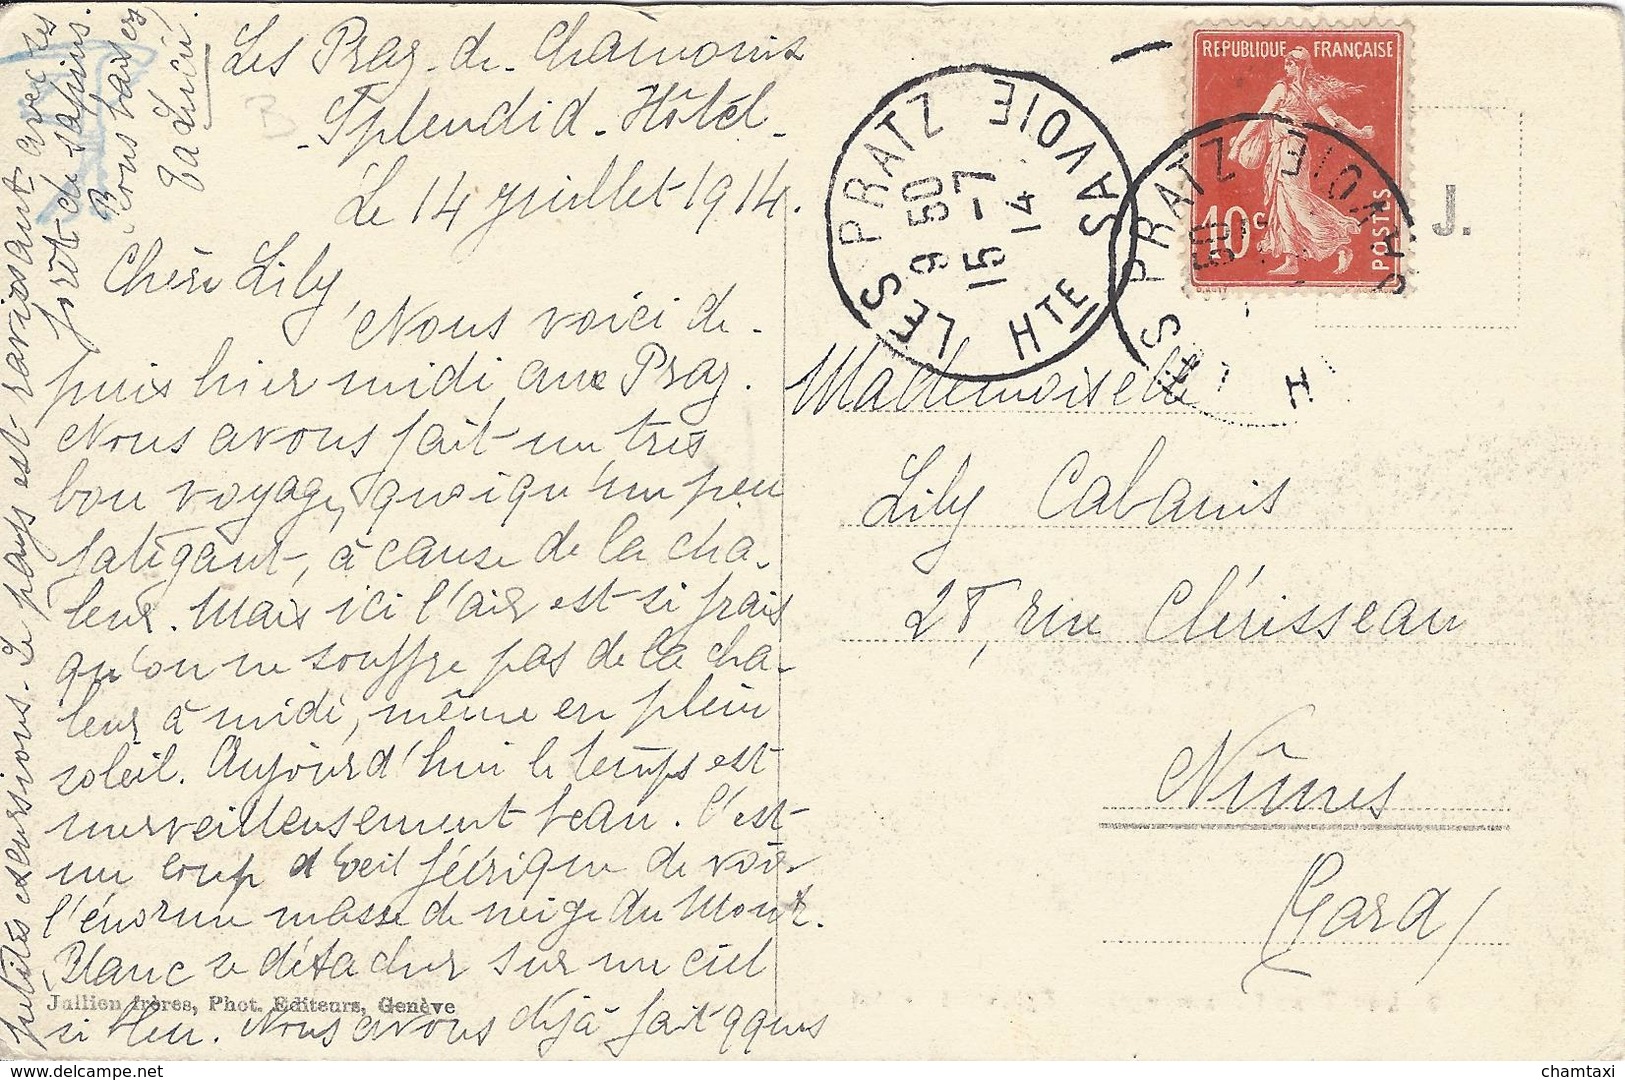 Les Praz-de-Chamonix
Splendid-Hôtel-
Le 14 juillet 1914.
Chère Lily
Nous voici de-
puis hier midi aux Praz.
Nous avons fait un très
bon voyage, quoiqu'un peu
fatigant, à cause de la cha-
leur. Mais ici l'air est si frais
qu'on ne souffre pas de la cha-
leur à midi, même en plein
soleil. Aujourd'hui le temps est
merveilleusement beau. C'est
un coup d'œil féérique de voir
l'énorme masse de neige du Mont-
Blanc se détacher sur un ciel
si bleu. Nous avons déjà fait qques
petites excursions. Le pays est ravissant avec ses
forêts de sapins.
Bons baisers
Ta Lucie.
Jullien frères, Phot. Editeurs, Genève
REPUBLIQUE FRANÇAISE
10c
POSTES
LES PRATZ
HTE SAVOIE
9 50
15 - 7
14
LES PRATZ
H SAVOIE
50
J.
Mademoiselle
Lily Cabanis
28, rue Clérisseau
Nîmes
Gard
chamtaxi
www.delcampe.net